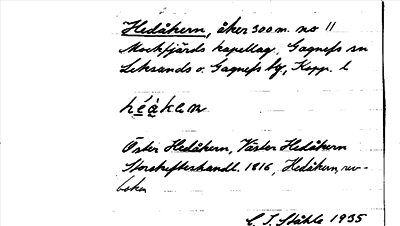 Hedåkern, åker 300 m. no 11
Mockfjärds kapellag, Gagnefs sn
Leksands o. Gagnefs tg, Kopp. l
héåkan
Öster Hedåkern, Väster Hedåkern
Storskifteshandl. 1816, Hedåkern, rev-
boken
C. I. Ståhle 1935